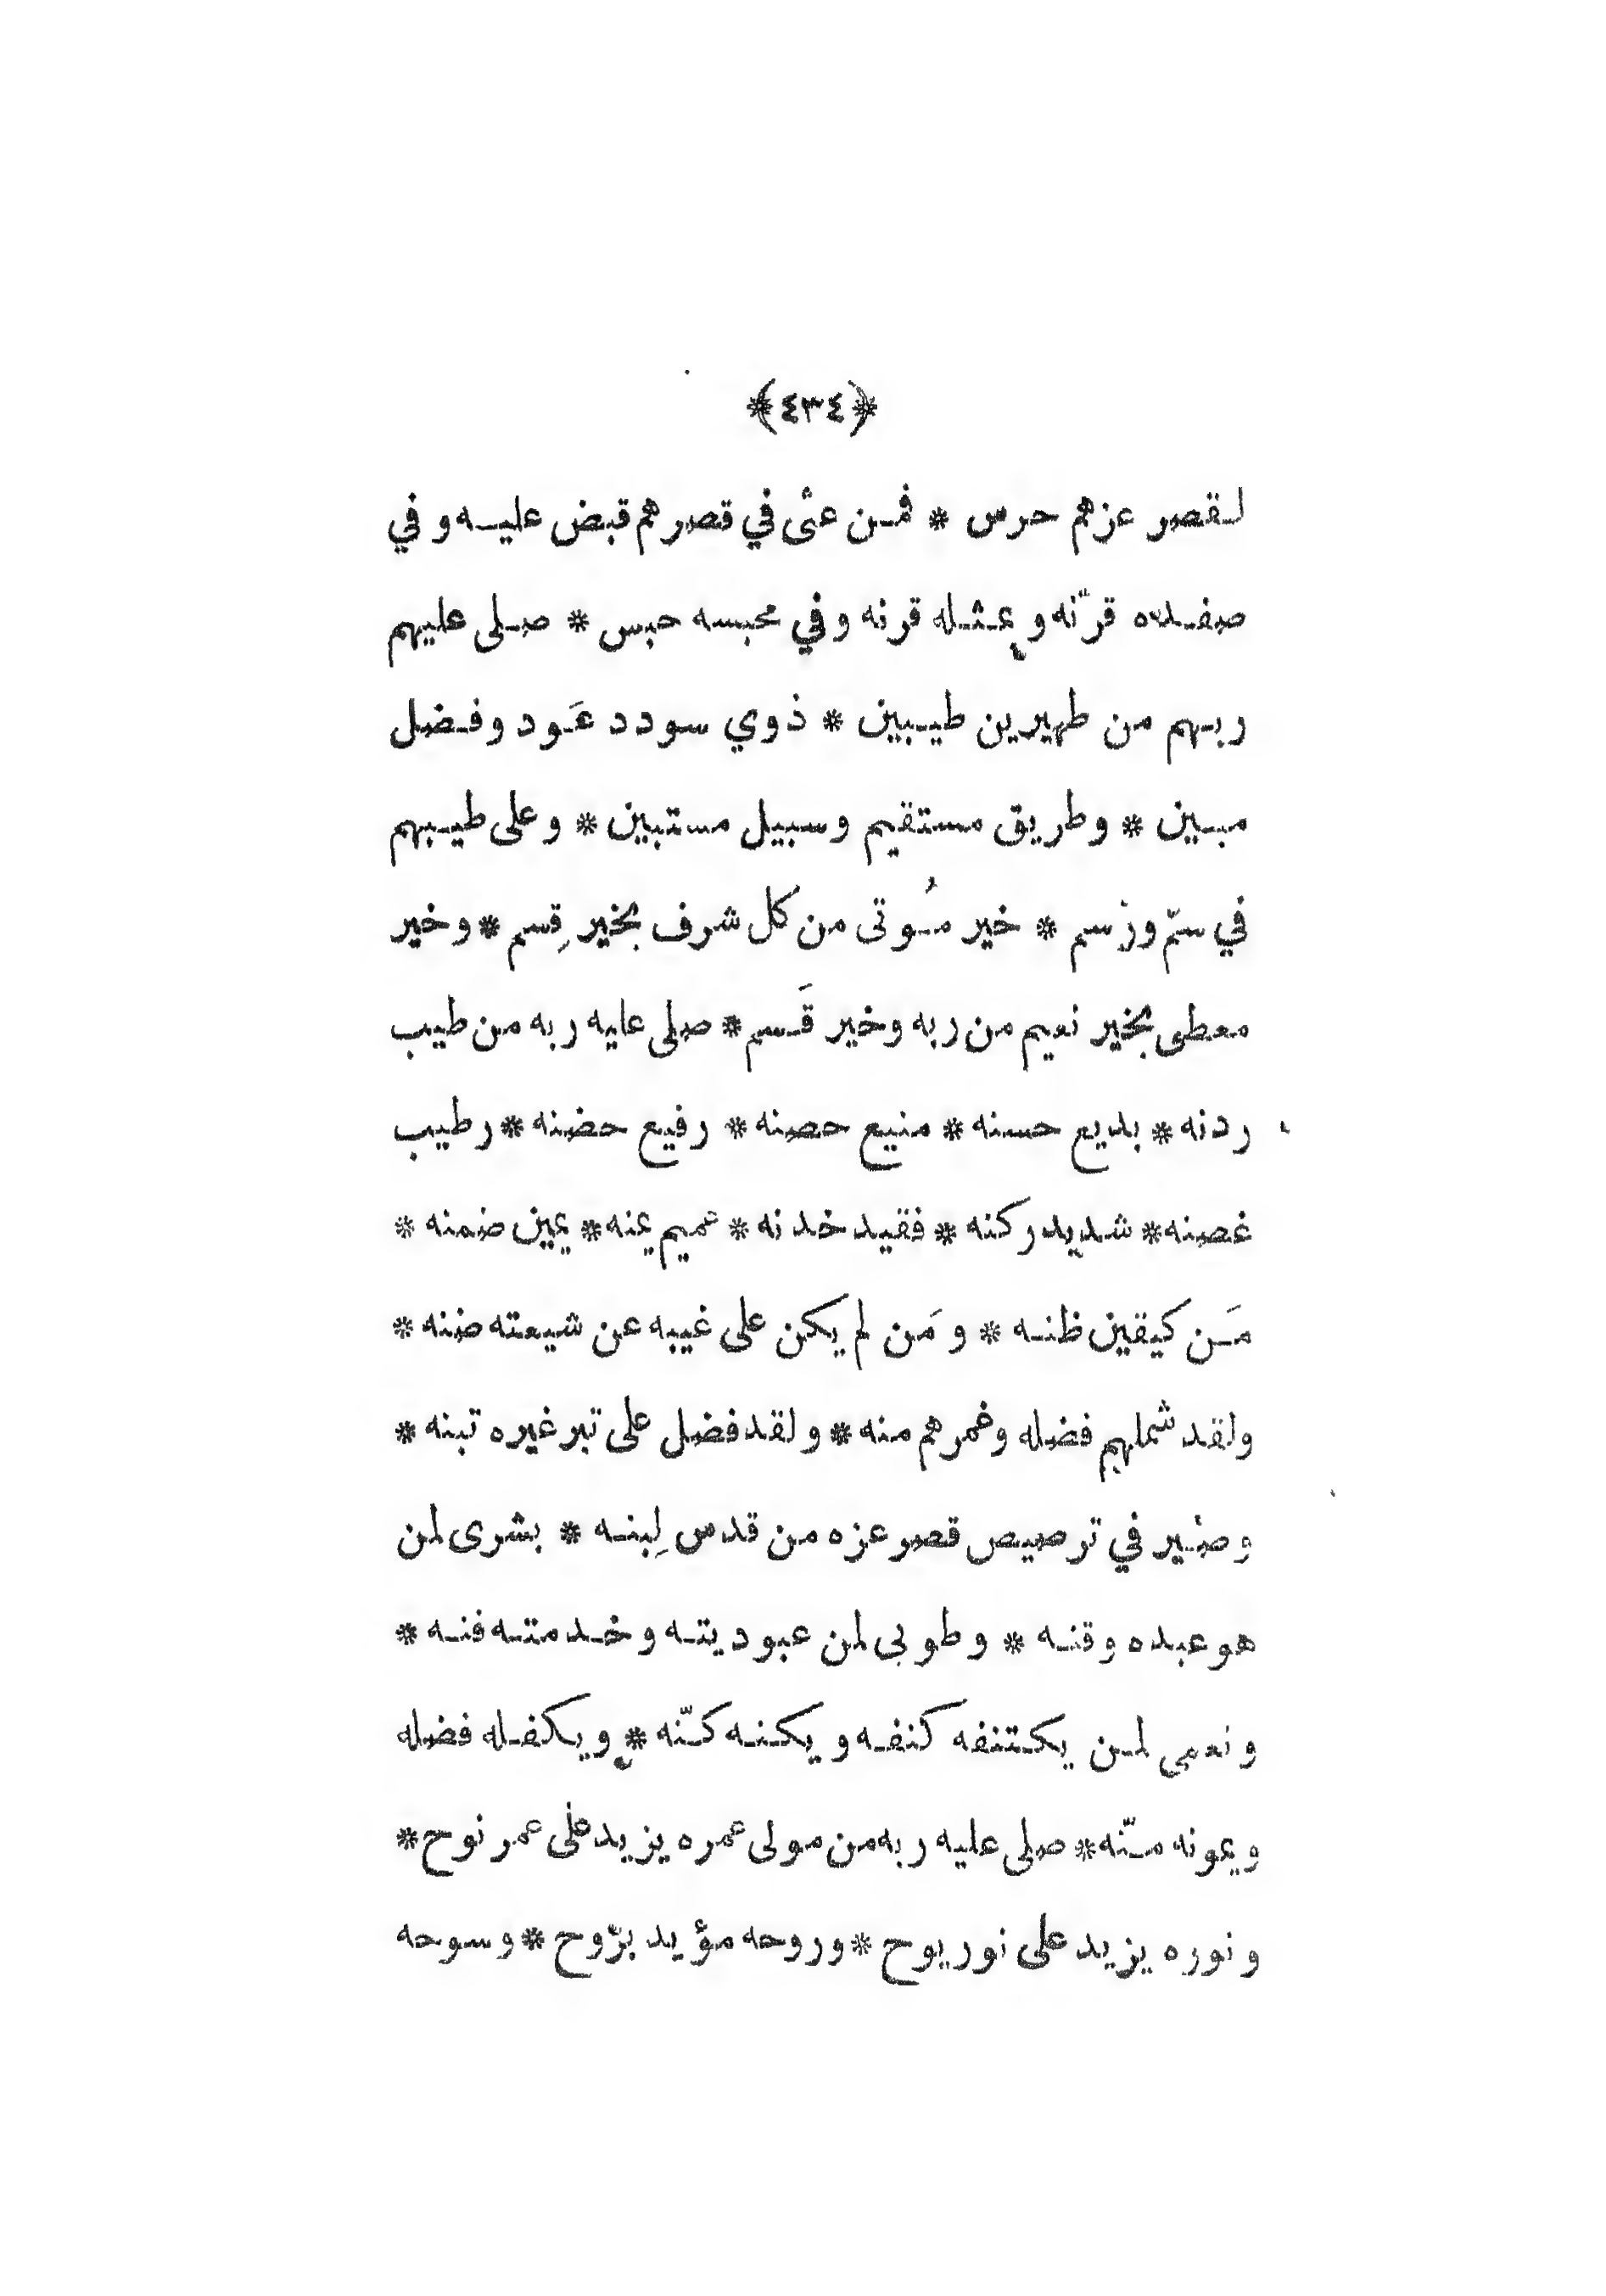 ﴿٤٣٤﴾
لقصر عزهم حرس * فمن عثى في قصرهم قبض عليه و في
صفده قرّنه و بمثله قرنه و في محبسه حبس * صلى عليهم
ربهم من طهيرين طيبين * ذوي سودد عَود وفضل
مبين * وطريق مستقيم وسبيل مستبين * وعلى طيبهم
في سمّ ورسم * خير مُوتى من كل شرف بخير قِسم * وخير
معطى بخير نعيم من ربه وخير قَسم * صلى عليه ربه من طيب
ردنه * بديع حسنه * منيع حصنه * رفيع حضنه * رطيب
غصنه * شديد ركنه * فقيد خدنه * عميم يمنه * يمين ضمنه *
مَن كيقين ظنه * و مَن لم يكن على غيبه عن شيعته ضنه *
ولقد شملهم فضله وغمرهم منه * و لقد فضل على تبر غيره تبنه *
و صير في ترصيص قصر عزه من قدس لِبنه * بشرى لمن
هو عبده وقنه * و طوبى لمن عبوديته و خدمته فنه *
و نعمى لمن يكتنفه كنفه و يكنه كنّه * و يكفله فضله
و يمونه منّه * صلى عليه ربه من مولى عمره يزيد على عمر نوح *
و نوره يزيد على نور يوح * وروحه مؤيد برّوح * و سوحه